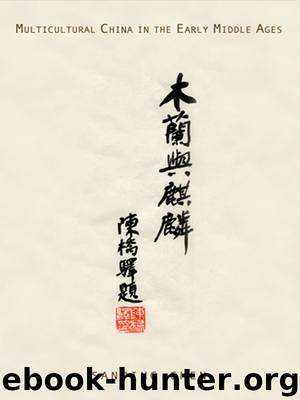 MULTICULTURAL CHINA IN THE EARLY MIDDLE AGES
木蘭與麒麟
陳橋驛題
ebook-hunter.org